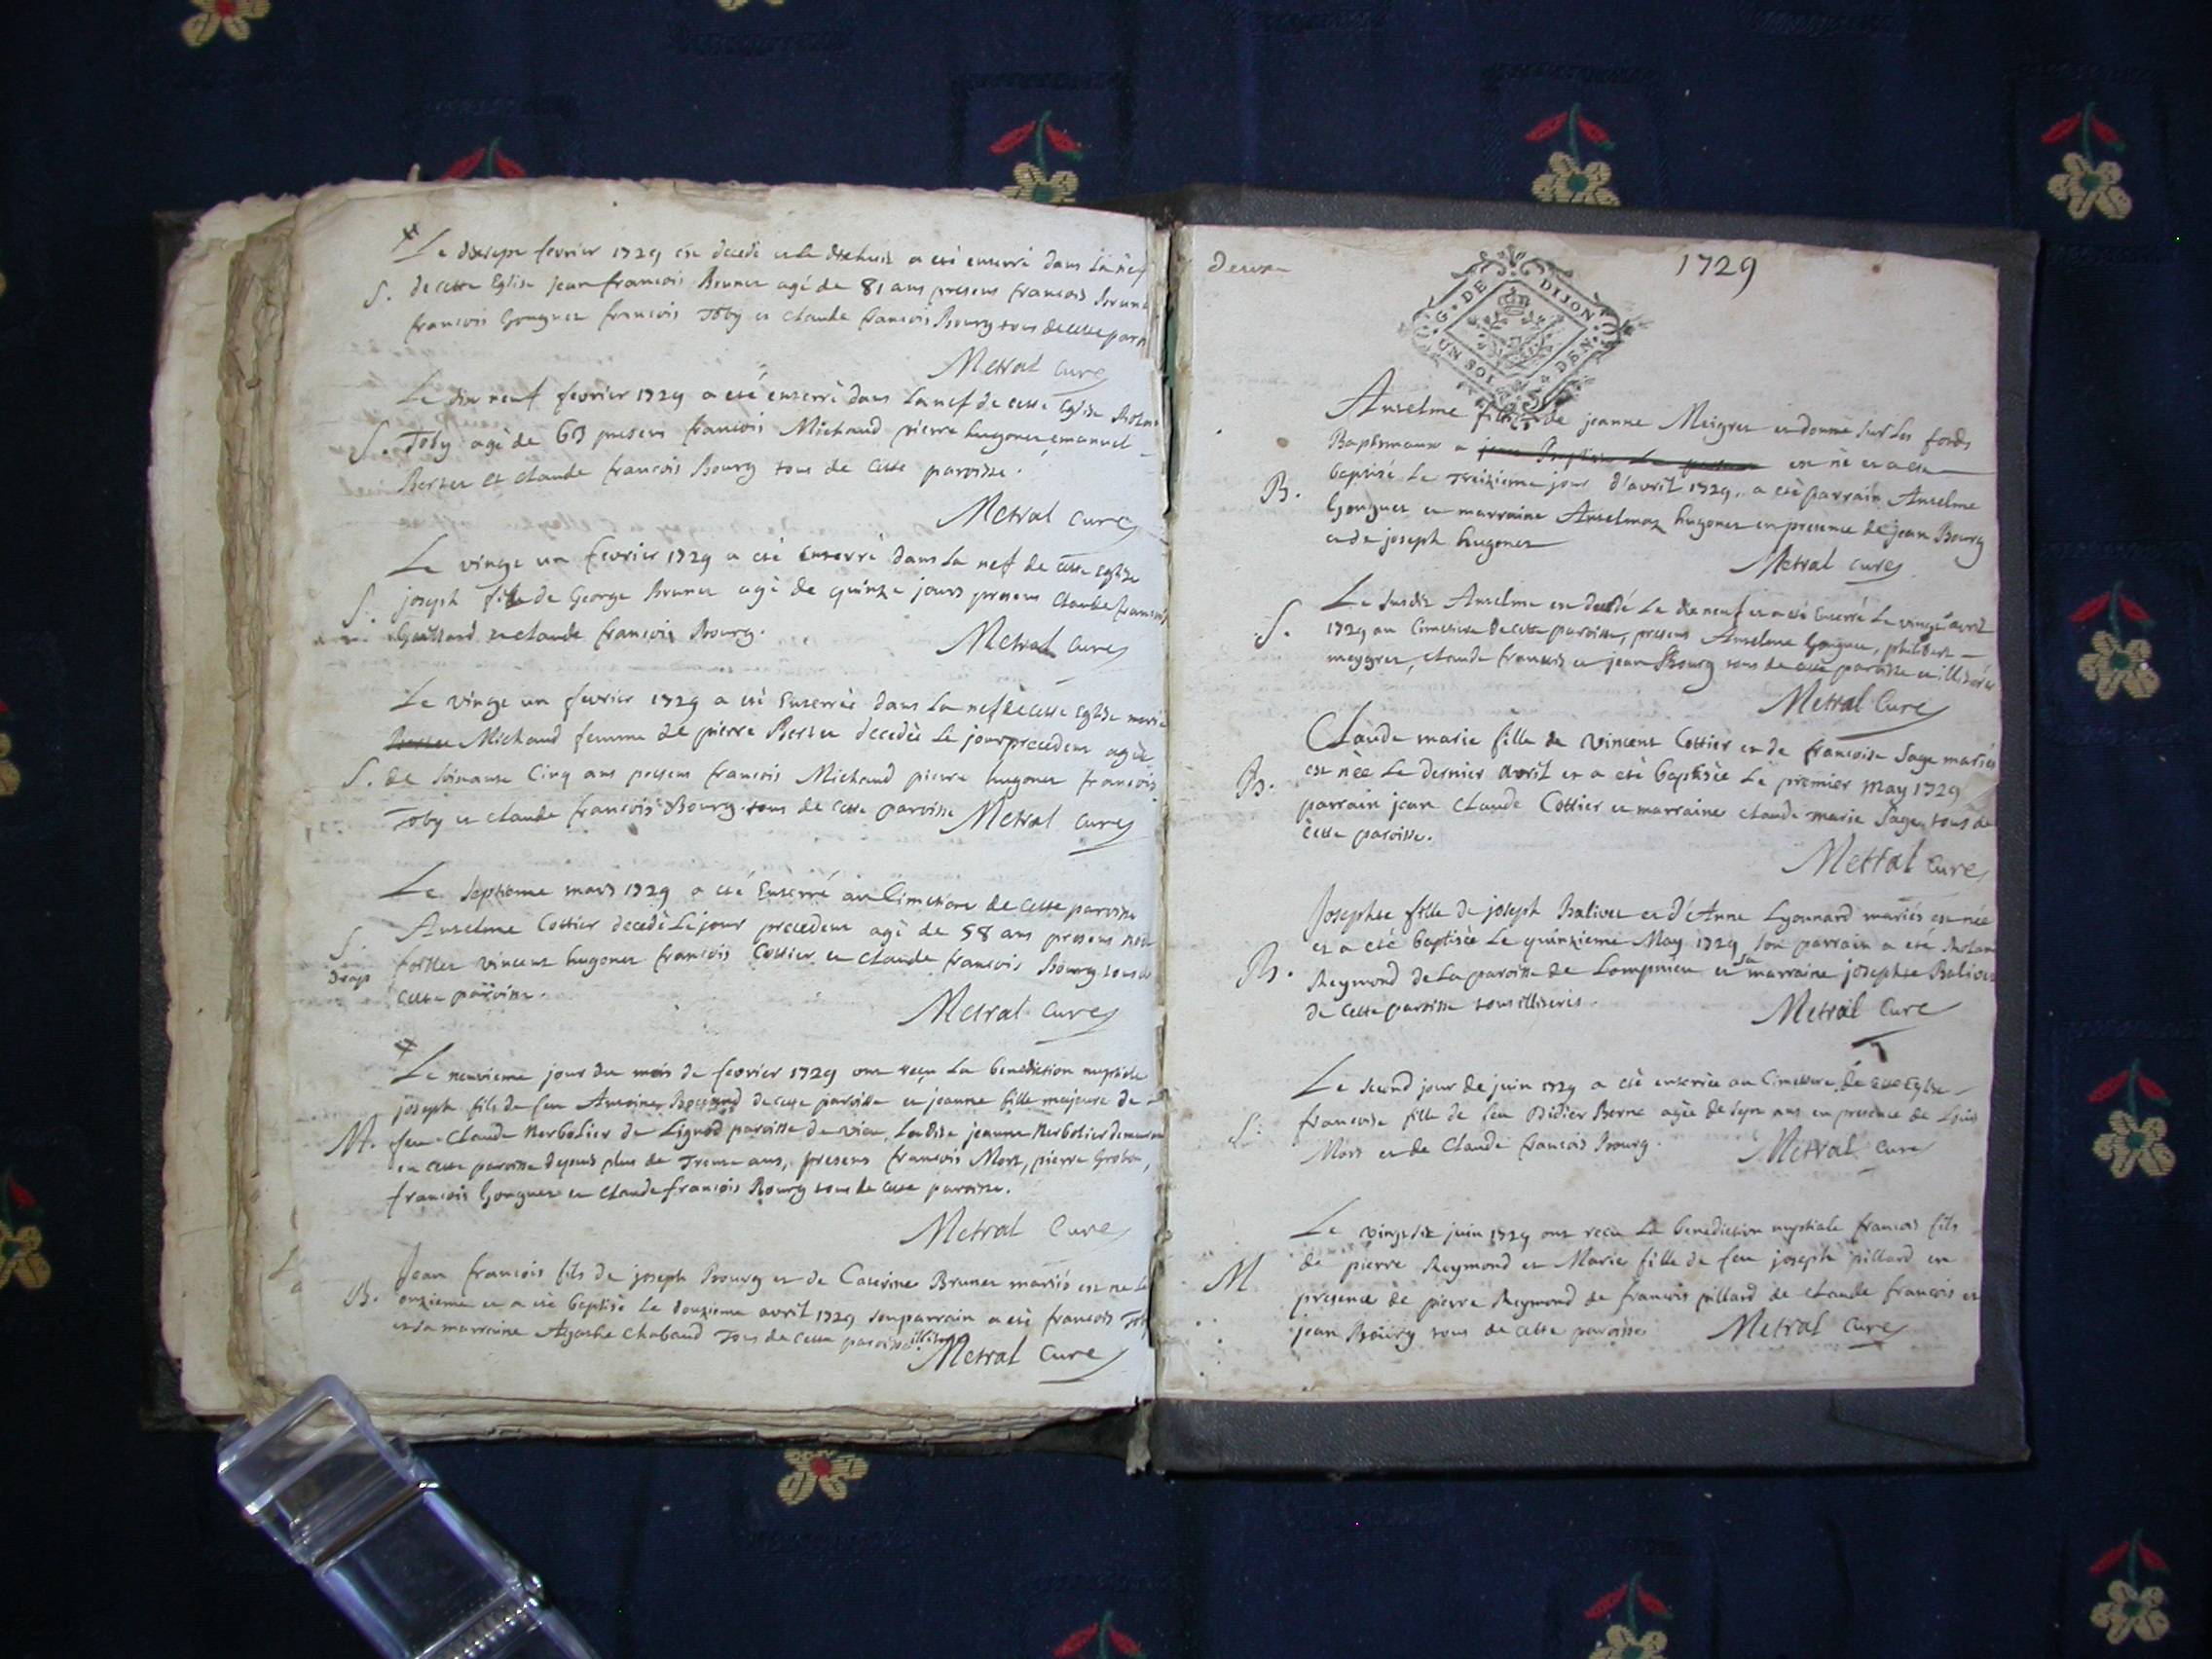 Le dixsept fevrier 1729 est decedé et le dixhuit a eté enterré dans la nef
S. de cette Eglise jean francois Brunet agé de 81 ans presens francois Brunet
francois Gonguet francois Toby et claude francois Bourg tous de cette paro
Metral curé
Le dix neuf fevrier 1729 a eté enterré dans la nef de cette Eglise
S. Toby agé de 63 presens francois Michaud pierre hugonet emanuel
Bertet et claude francois Bourg tous de cette paroisse.
Metral curé
Le vingt un fevrier 1729 a eté Enterré dans La nef de cette Eglise
S. joseph fils de George Brunet agé de quinze jours presens Claude francois
Gaillard et claude francois Bourg.
Metral curé
Le vingt un fevrier 1729 a eté Enterrée dans La nef de cette Eglise marie
Michaud femme de pierre Bertet decedée Le jour precedent agée
S. de soixante Cinq ans presens francois Michaud pierre hugonet francois
Toby et claude francois Bourg tous de cette paroisse Metral curé
Le septieme mars 1729 a eté Enterré au Cimetiere de cette paroisse
S. Anselme Cottier decedé Le jour precedent agé de 58 ans presens
draps vincent hugonet francois Cottier et claude francois Bourg tous de
cette paroisse.
Metral curé
Le neuvieme jour du mois de fevrier 1729 ont reçu La benediction nuptiale
joseph fils de feu Antoine de cette paroisse et jeanne fille majeure de
M. feu Claude Berbolier de Lignod paroisse de vieu, Ladite jeanne Berbolier demeurant
en cette paroisse depuis plus de Trente ans, presens francois Mort, pierre Grobon,
francois Gonguet et claude francois Bourg tous de cette paroisse.
Metral Curé
Jean francois fils de joseph Bourg et de Caterine Brunet mariés est né Le
B. onzieme et a eté baptisé Le douzieme avril 1729 son parrain a eté francois Toby
et sa marraine Agathe Chabaud Tous de cette paroisse
Metral Curé
deux 1729
G. DE DIJON
UN SOL DEN.
Anselme fils de jeanne Meigret et donné sur Les fonds
Baptismaux a est né et a eté
B. baptisé Le Treizieme jour d'avril 1729, a eté parrain Anselme
Gonguet et marraine Anselmaz hugonet en presence de jean Bourg
et de joseph hugonet
Metral curé
Le susdit Anselme est decedé Le dix neuf et a eté Enterré Le vingt avril
S. 1729 au Cimetiere de cette paroisse, presens Anselme Gonguet, philibert
meygret, claude francois et jean Bourg tous de cette paroisse et illiterés
Metral Curé
Claude marie fille de vincent Cottier et de francoise Sage mariés
B. est née Le dernier avril et a eté baptisée Le premier may 1729
parrain jean claude Cottier et marraine claude marie Sage tous de
cette paroisse.
Metral Curé
Josephte fille de joseph Balivet et d'Anne Lyonnard mariés est née
et a eté baptisée Le quinzieme May 1729 son parrain a eté
B. Reymond de La paroisse de Lompnieu et sa marraine josephte Balivet
de cette paroisse tous illiterés.
Metral Curé
Le second jour de juin 1729 a eté enterrée au Cimetiere de cette Eglise
S. francoise fille de feu Didier Berne agée de sept ans en presence de Louis
Mort et de Claude francois Bourg. Metral Curé
Le vingtsix juin 1729 ont reçu La benediction nuptiale francois fils
M de pierre Reymond et Marie fille de feu joseph pillard en
presence de pierre Reymond de francois pillard de claude francois et
jean Bourg tous de cette paroisse Metral curé